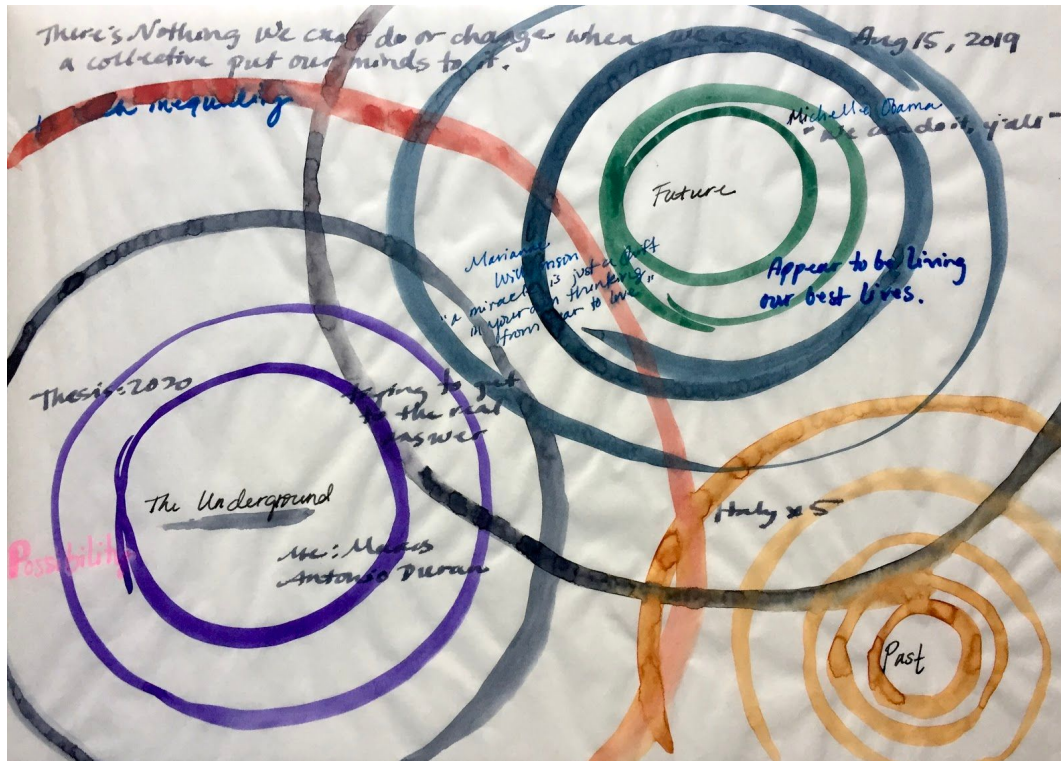 There's Nothing We can't do or change when we as
a collective put our minds to it.
Aug 15, 2019
inequality
Michelle Obama
"We can do it, y'all"
Future
Marianne
Williamson
"a miracle is just a shift
in your own thinking,
from fear to love"
Appear to be living
our best lives.
Thesis: 2020
trying to get
to the real
answer
The Underground
Possibility
Me: Marcos
Antonio Duran
Italy x 5
Past